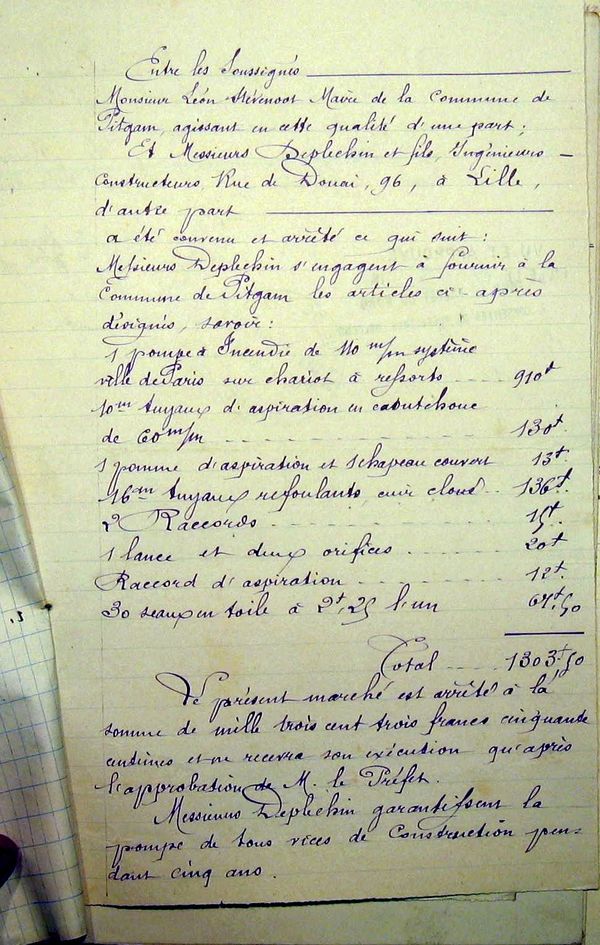 Entre les Soussignés
Monsieur Léon Stévenoot Maire de la Commune de
Pitgam, agissant en cette qualité d'une part ;
Et Messieurs Deplechin et fils, Ingénieurs -
Constructeurs, Rue de Douai, 96, à Lille,
d'autre part
a été convenu et arrêté ce qui suit :
Messieurs Deplechin s'engagent à fournir à la
Commune de Pitgam les articles ci-après
désignés, savoir :
1 pompe à Incendie de 110 m/m système
ville de Paris sur chariot à ressorts 910f
10m tuyaux d'aspiration en caoutchouc
de 60 m/m 130f
1 pomme d'aspiration et 1 chapeau couvert 13f.
16m tuyaux refoulants, cuir cloué 136f.
2 Raccords 15f.
1 lance et deux orifices 20f
Raccord d'aspiration 12f.
30 seaux en toile à 2f,25 l'un 67f,50
Total 1303f,50
Le présent marché est arrêté à la
somme de mille trois cent trois francs cinquante
centimes et ne recevra son exécution qu'après
l'approbation de M. le Préfet.
Messieurs Deplechin garantissent la
pompe de tous vices de Construction pen-
dant cinq ans.